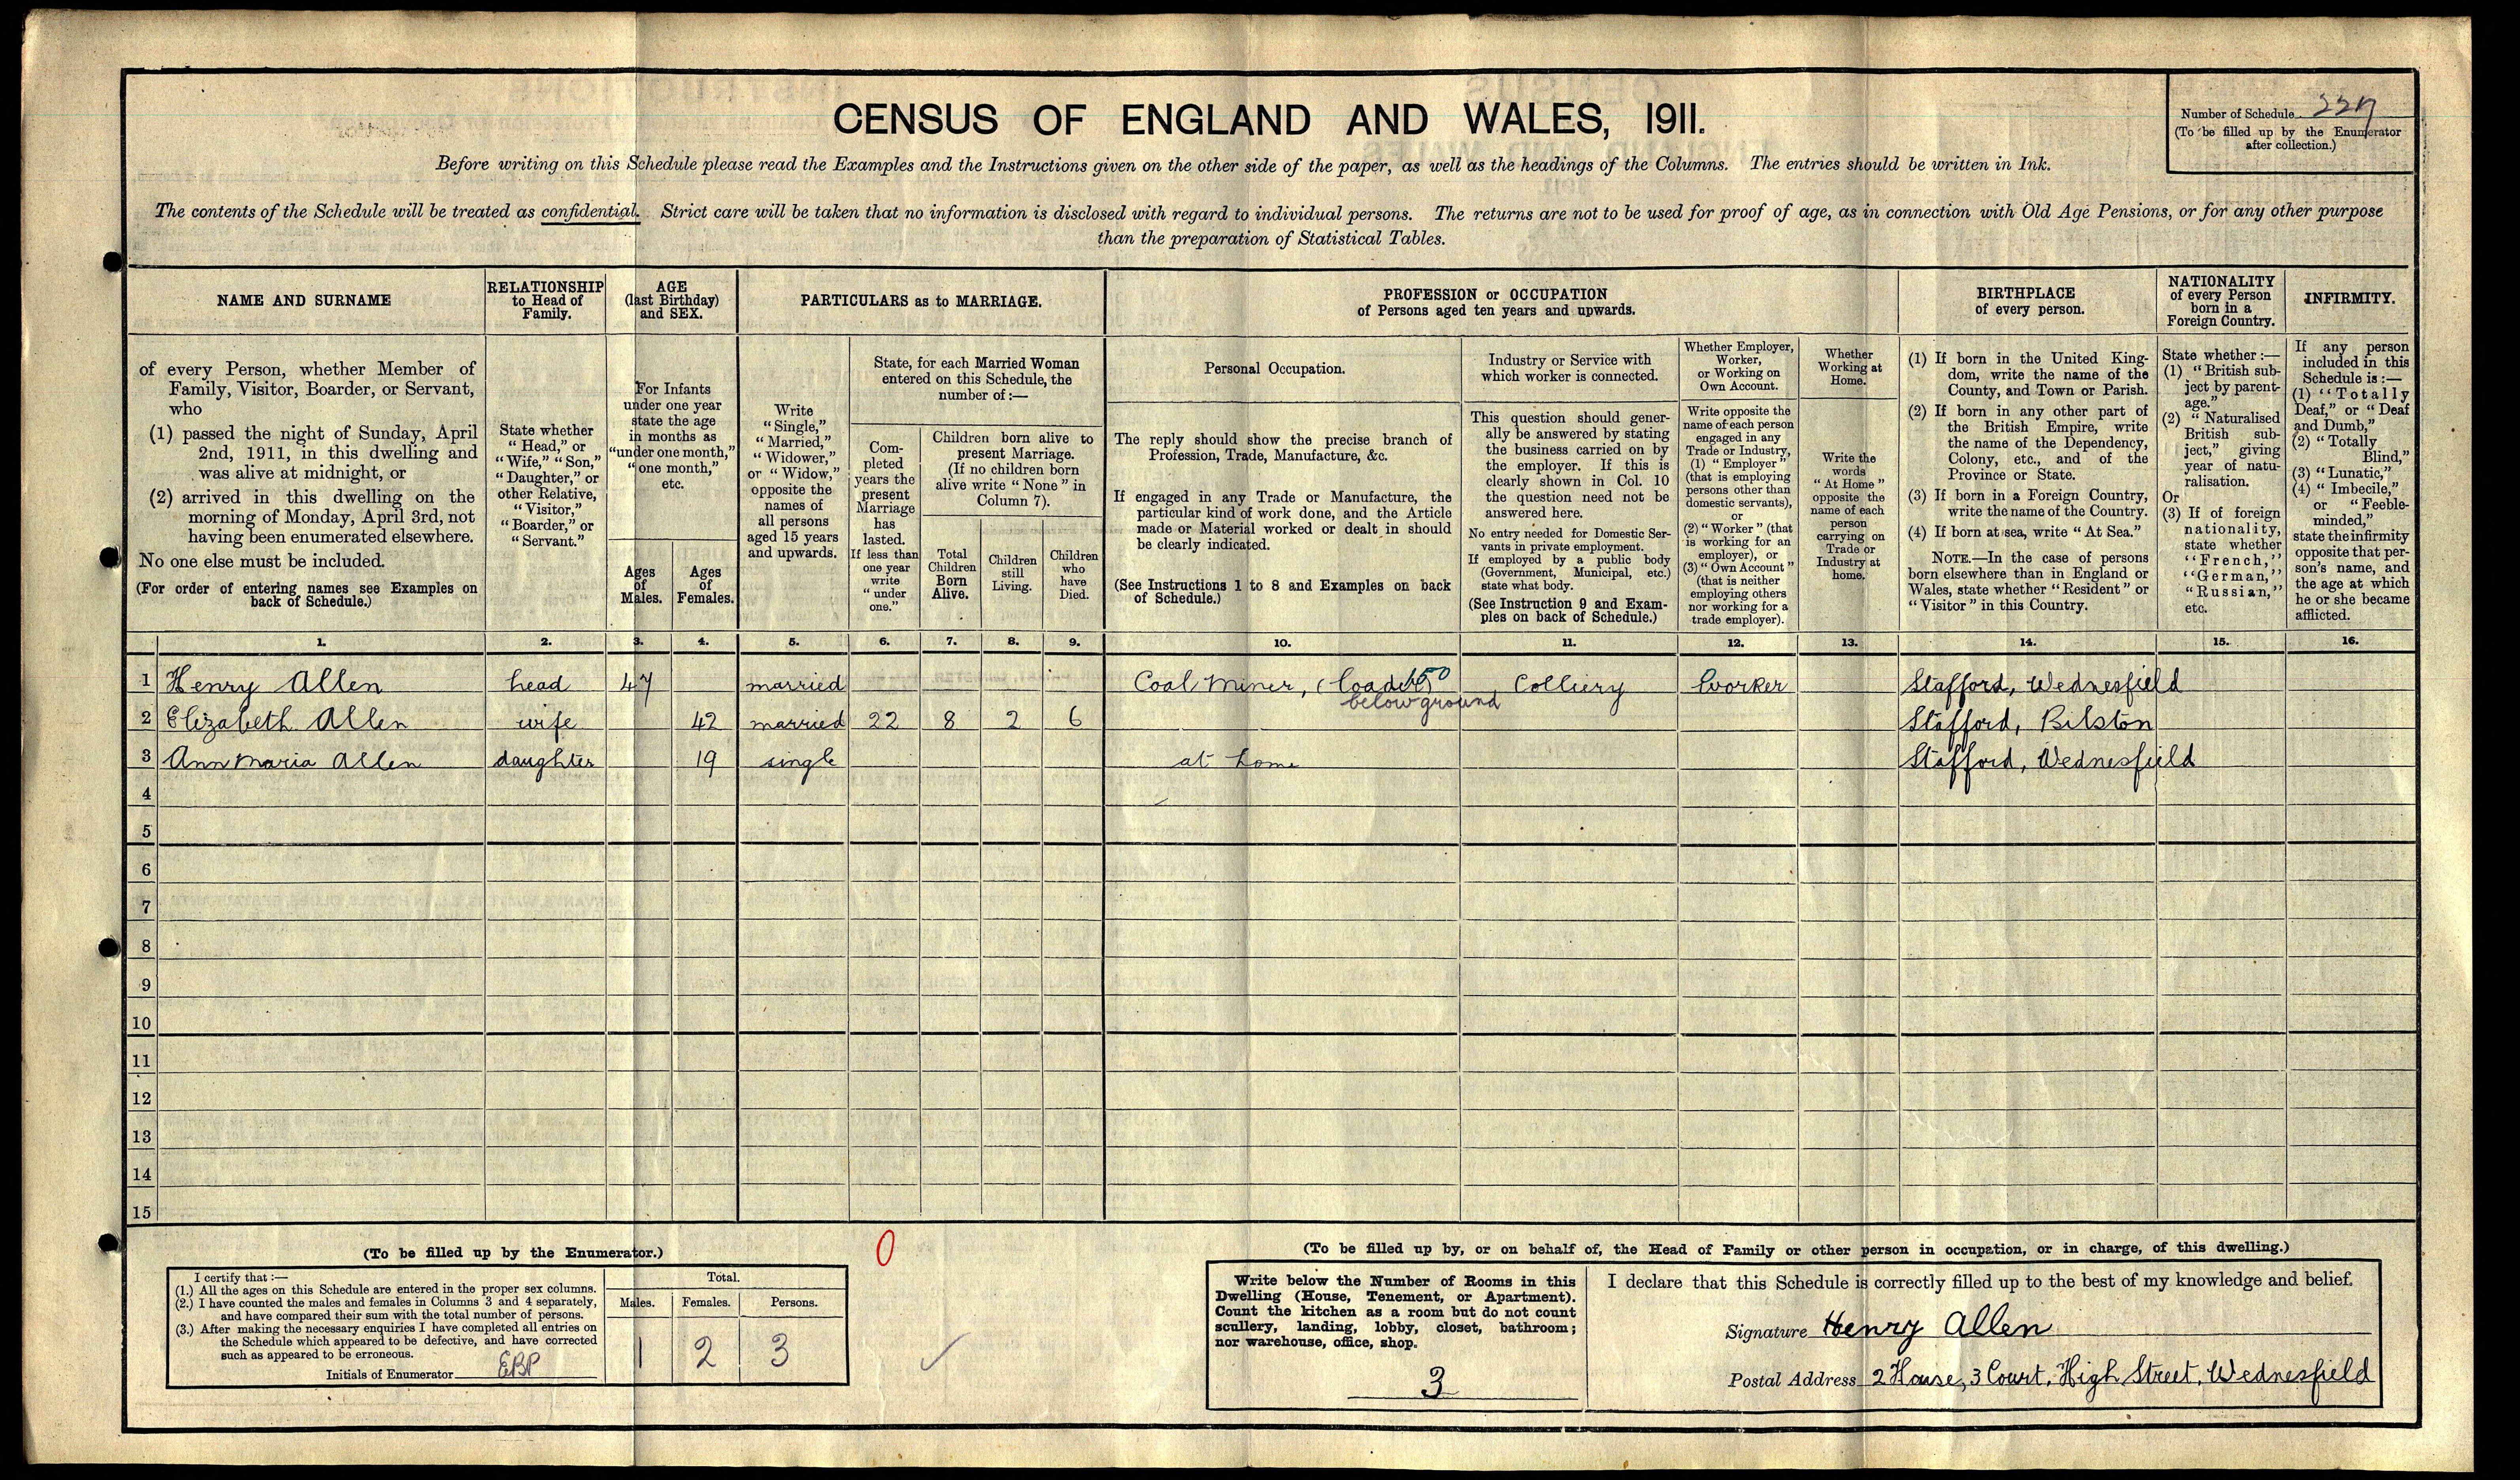 CENSUS OF ENGLAND AND WALES, 1911.
Number of Schedule 227
(To be filled up by the Enumerator
after collection.)
Before writing on this Schedule please read the Examples and the Instructions given on the other side of the paper, as well as the headings of the Columns. The entries should be written in Ink.
The contents of the Schedule will be treated as confidential. Strict care will be taken that no information is disclosed with regard to individual persons. The returns are not to be used for proof of age, as in connection with Old Age Pensions, or for any other purpose
than the preparation of Statistical Tables.
NAME AND SURNAME
of every Person, whether Member of
Family, Visitor, Boarder, or Servant,
who
(1) passed the night of Sunday, April
2nd, 1911, in this dwelling and
was alive at midnight, or
(2) arrived in this dwelling on the
morning of Monday, April 3rd, not
having been enumerated elsewhere.
No one else must be included.
(For order of entering names see Examples on
back of Schedule.)
RELATIONSHIP
to Head of
Family.
State whether
"Head," or
"Wife," "Son,"
"Daughter," or
other Relative,
"Visitor,"
"Boarder," or
"Servant."
AGE
(last Birthday)
and SEX.
For Infants
under one year
state the age
in months as
"under one month,"
"one month,"
etc.
Ages
of
Males.
Ages
of
Females.
PARTICULARS as to MARRIAGE.
Write
"Single,"
"Married,"
"Widower,"
or "Widow,"
opposite the
names of
all persons
aged 15 years
and upwards.
State, for each Married Woman
entered on this Schedule, the
number of:—
Com-
pleted
years the
present
Marriage
has
lasted.
If less than
one year
write
"under
one."
Children born alive to
present Marriage.
(If no children born
alive write "None" in
Column 7).
Total
Children
Born
Alive.
Children
still
Living.
Children
who
have
Died.
PROFESSION or OCCUPATION
of Persons aged ten years and upwards.
Personal Occupation.
The reply should show the precise branch of
Profession, Trade, Manufacture, &c.
If engaged in any Trade or Manufacture, the
particular kind of work done, and the Article
made or Material worked or dealt in should
be clearly indicated.
(See Instructions 1 to 8 and Examples on back
of Schedule.)
Industry or Service with
which worker is connected.
This question should gener-
ally be answered by stating
the business carried on by
the employer. If this is
clearly shown in Col. 10
the question need not be
answered here.
No entry needed for Domestic Ser-
vants in private employment.
If employed by a public body
(Government, Municipal, etc.)
state what body.
(See Instruction 9 and Exam-
ples on back of Schedule.)
Whether Employer,
Worker,
or Working on
Own Account.
Write opposite the
name of each person
engaged in any
Trade or Industry,
(1) "Employer"
(that is employing
persons other than
domestic servants),
or
(2) "Worker" (that
is working for an
employer), or
(3) "Own Account"
(that is neither
employing others
nor working for a
trade employer).
Whether
Working at
Home.
Write the
words
"At Home"
opposite the
name of each
person
carrying on
Trade or
Industry at
home.
BIRTHPLACE
of every person.
(1) If born in the United King-
dom, write the name of the
County, and Town or Parish.
(2) If born in any other part of
the British Empire, write
the name of the Dependency,
Colony, etc., and of the
Province or State.
(3) If born in a Foreign Country,
write the name of the Country.
(4) If born at sea, write "At Sea."
NOTE.—In the case of persons
born elsewhere than in England or
Wales, state whether "Resident" or
"Visitor" in this Country.
NATIONALITY
of every Person
born in a
Foreign Country.
State whether:—
(1) "British sub-
ject by parent-
age."
(2) "Naturalised
British sub-
ject," giving
year of natu-
ralisation.
Or
(3) If of foreign
nationality,
state whether
"French,"
"German,"
"Russian,"
etc.
INFIRMITY.
If any person
included in this
Schedule is:—
(1) "Totally
Deaf," or "Deaf
and Dumb,"
(2) "Totally
Blind,"
(3) "Lunatic,"
(4) "Imbecile,"
or "Feeble-
minded,"
state the infirmity
opposite that per-
son's name, and
the age at which
he or she became
afflicted.
1. 2. 3. 4. 5. 6. 7. 8. 9. 10. 11. 12. 13. 14. 15. 16.
1 Henry Allen head 47 married Coal Miner, (loader) 150 Colliery Worker Stafford, Wednesfield
below ground
2 Elizabeth Allen wife 42 married 22 8 2 6 Stafford, Bilston
3 Ann Maria Allen daughter 19 single at home Stafford, Wednesfield
4
5
6
7
8
9
10
11
12
13
14
15
(To be filled up by the Enumerator.)
I certify that:—
(1.) All the ages on this Schedule are entered in the proper sex columns.
(2.) I have counted the males and females in Columns 3 and 4 separately,
and have compared their sum with the total number of persons.
(3.) After making the necessary enquiries I have completed all entries on
the Schedule which appeared to be defective, and have corrected
such as appeared to be erroneous.
Initials of Enumerator EBP
Total.
Males. Females. Persons.
1 2 3
0
(To be filled up by, or on behalf of, the Head of Family or other person in occupation, or in charge, of this dwelling.)
Write below the Number of Rooms in this
Dwelling (House, Tenement, or Apartment).
Count the kitchen as a room but do not count
scullery, landing, lobby, closet, bathroom;
nor warehouse, office, shop.
3
I declare that this Schedule is correctly filled up to the best of my knowledge and belief.
Signature Henry Allen
Postal Address 2 House, 3 Court, High Street, Wednesfield